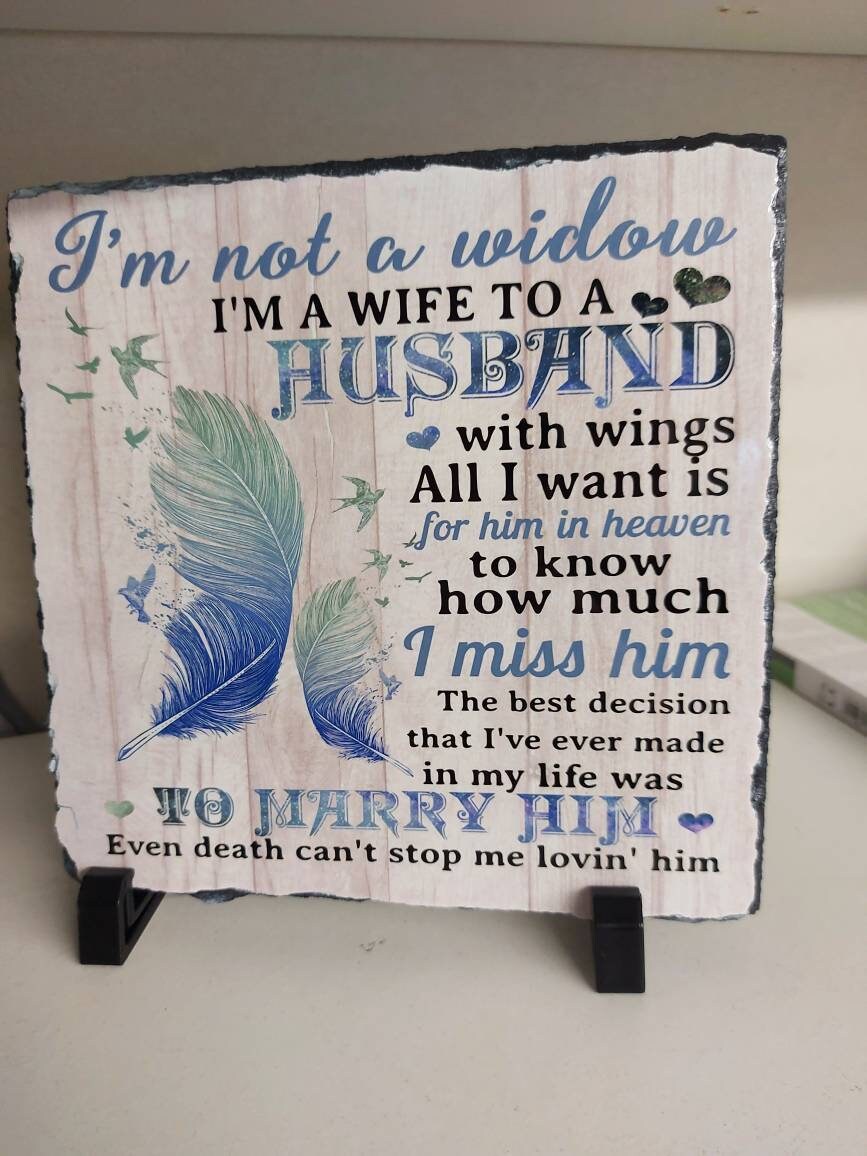 I'm not a widow
I'M A WIFE TO A
HUSBAND
with wings
All I want is
for him in heaven
to know
how much
I miss him
The best decision
that I've ever made
in my life was
TO MARRY HIM
Even death can't stop me lovin' him